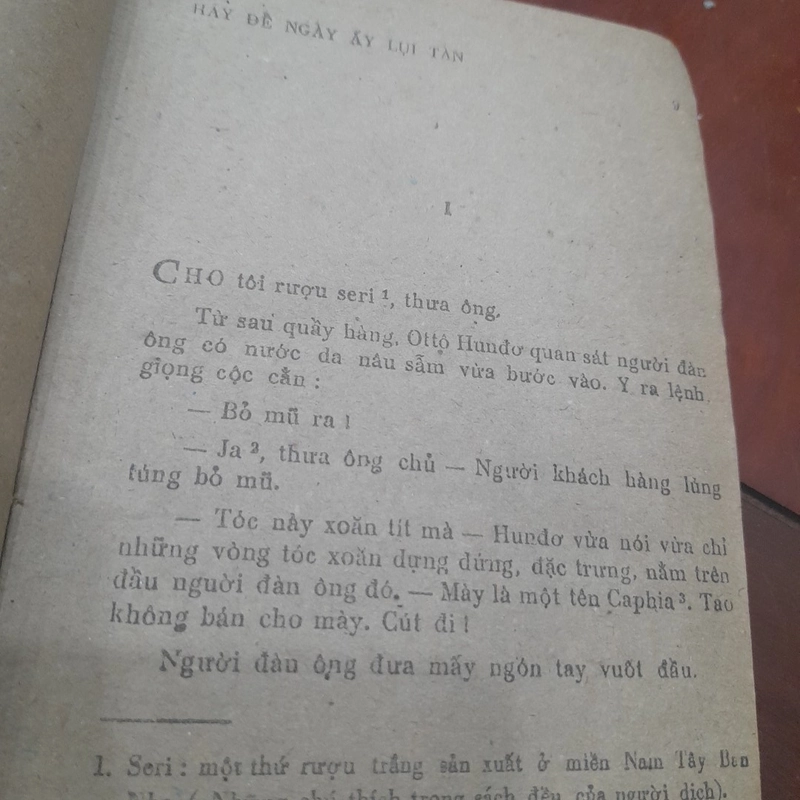 HÃY ĐỂ NGÀY ẤY LỤI TÀN
9
I
CHO tôi rượu seri ¹, thưa ông.
Từ sau quầy hàng, Ottô Hunđơ quan sát người đàn
ông có nước da nâu sẫm vừa bước vào. Y ra lệnh
giọng cộc cằn :
— Bỏ mũ ra !
— Ja ², thưa ông chủ — Người khách hàng lủng
túng bỏ mũ.
— Tóc này xoăn tít mà — Hunđơ vừa nói vừa chỉ
những vòng tóc xoăn dựng đứng, đặc trưng, nằm trên
đầu nguời đàn ông đó. — Mày là một tên Caphia ³. Tao
không bán cho mày. Cút đi !
Người đàn ông đưa mấy ngón tay vuốt đầu.
1. Seri : một thứ rượu trắng sản xuất ở miền Nam Tây Ban
Nha ( Những chú thích trong sách đều của người dịch).